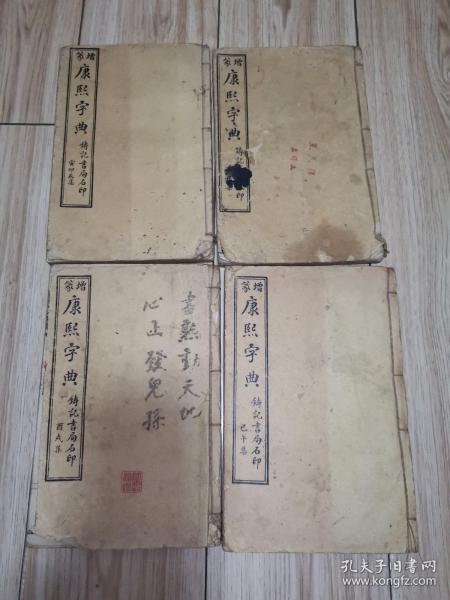 增篆
康熙字典
鑄記書局石印
寅卯辰集
增篆
康熙字典
增篆
康熙字典
鑄記書局石印
酉戌集
天地
心上發兒孫
增篆
康熙字典
鑄記書局石印
巳午集
孔夫子旧书网
www.kongfz.com